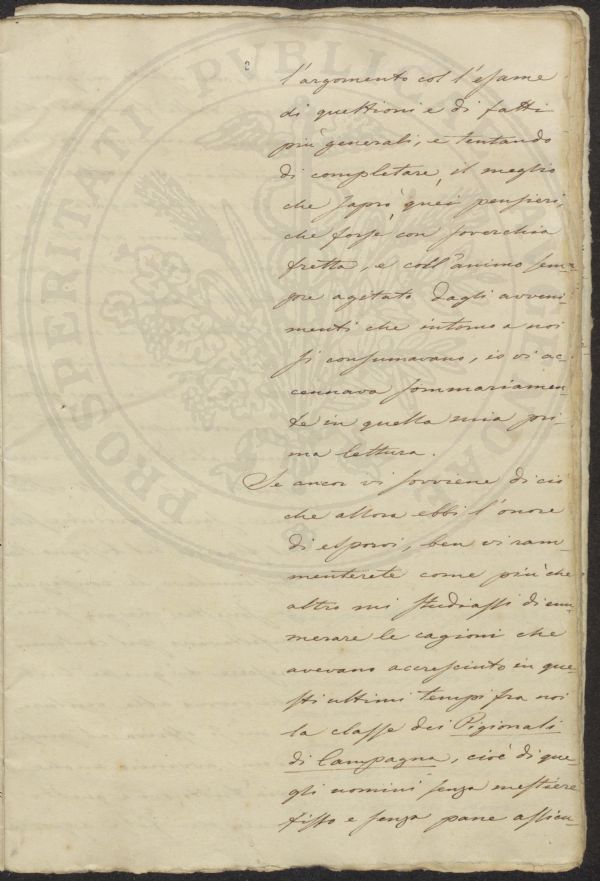 l'argomento col l'esame
di quettioni e di fatti
più generali, e tentando
di completare, il meglio
che saprò quei pensieri,
che forse con soverchia
fretta, e coll'animo sem-
pre agitato dagli avveni-
menti che intorno a noi
si consumavano, io vi ac-
cennava sommariamen-
te in quella mia pri-
ma lettura.
Se ancor vi sovviene di ciò
che allora ebbi l'onore
di esporvi, ben vi ram-
menterete come più che
altro mi studiassi di enu-
merare le cagioni che
avevano accresciuto in que-
sti ultimi tempi fra noi
la classe dei Pigionali
di Campagna, cioè di que-
gli uomini senza mestiere
fisso e senza pane assicu-
PROSPERITATI PVBLICAE AVGENDAE